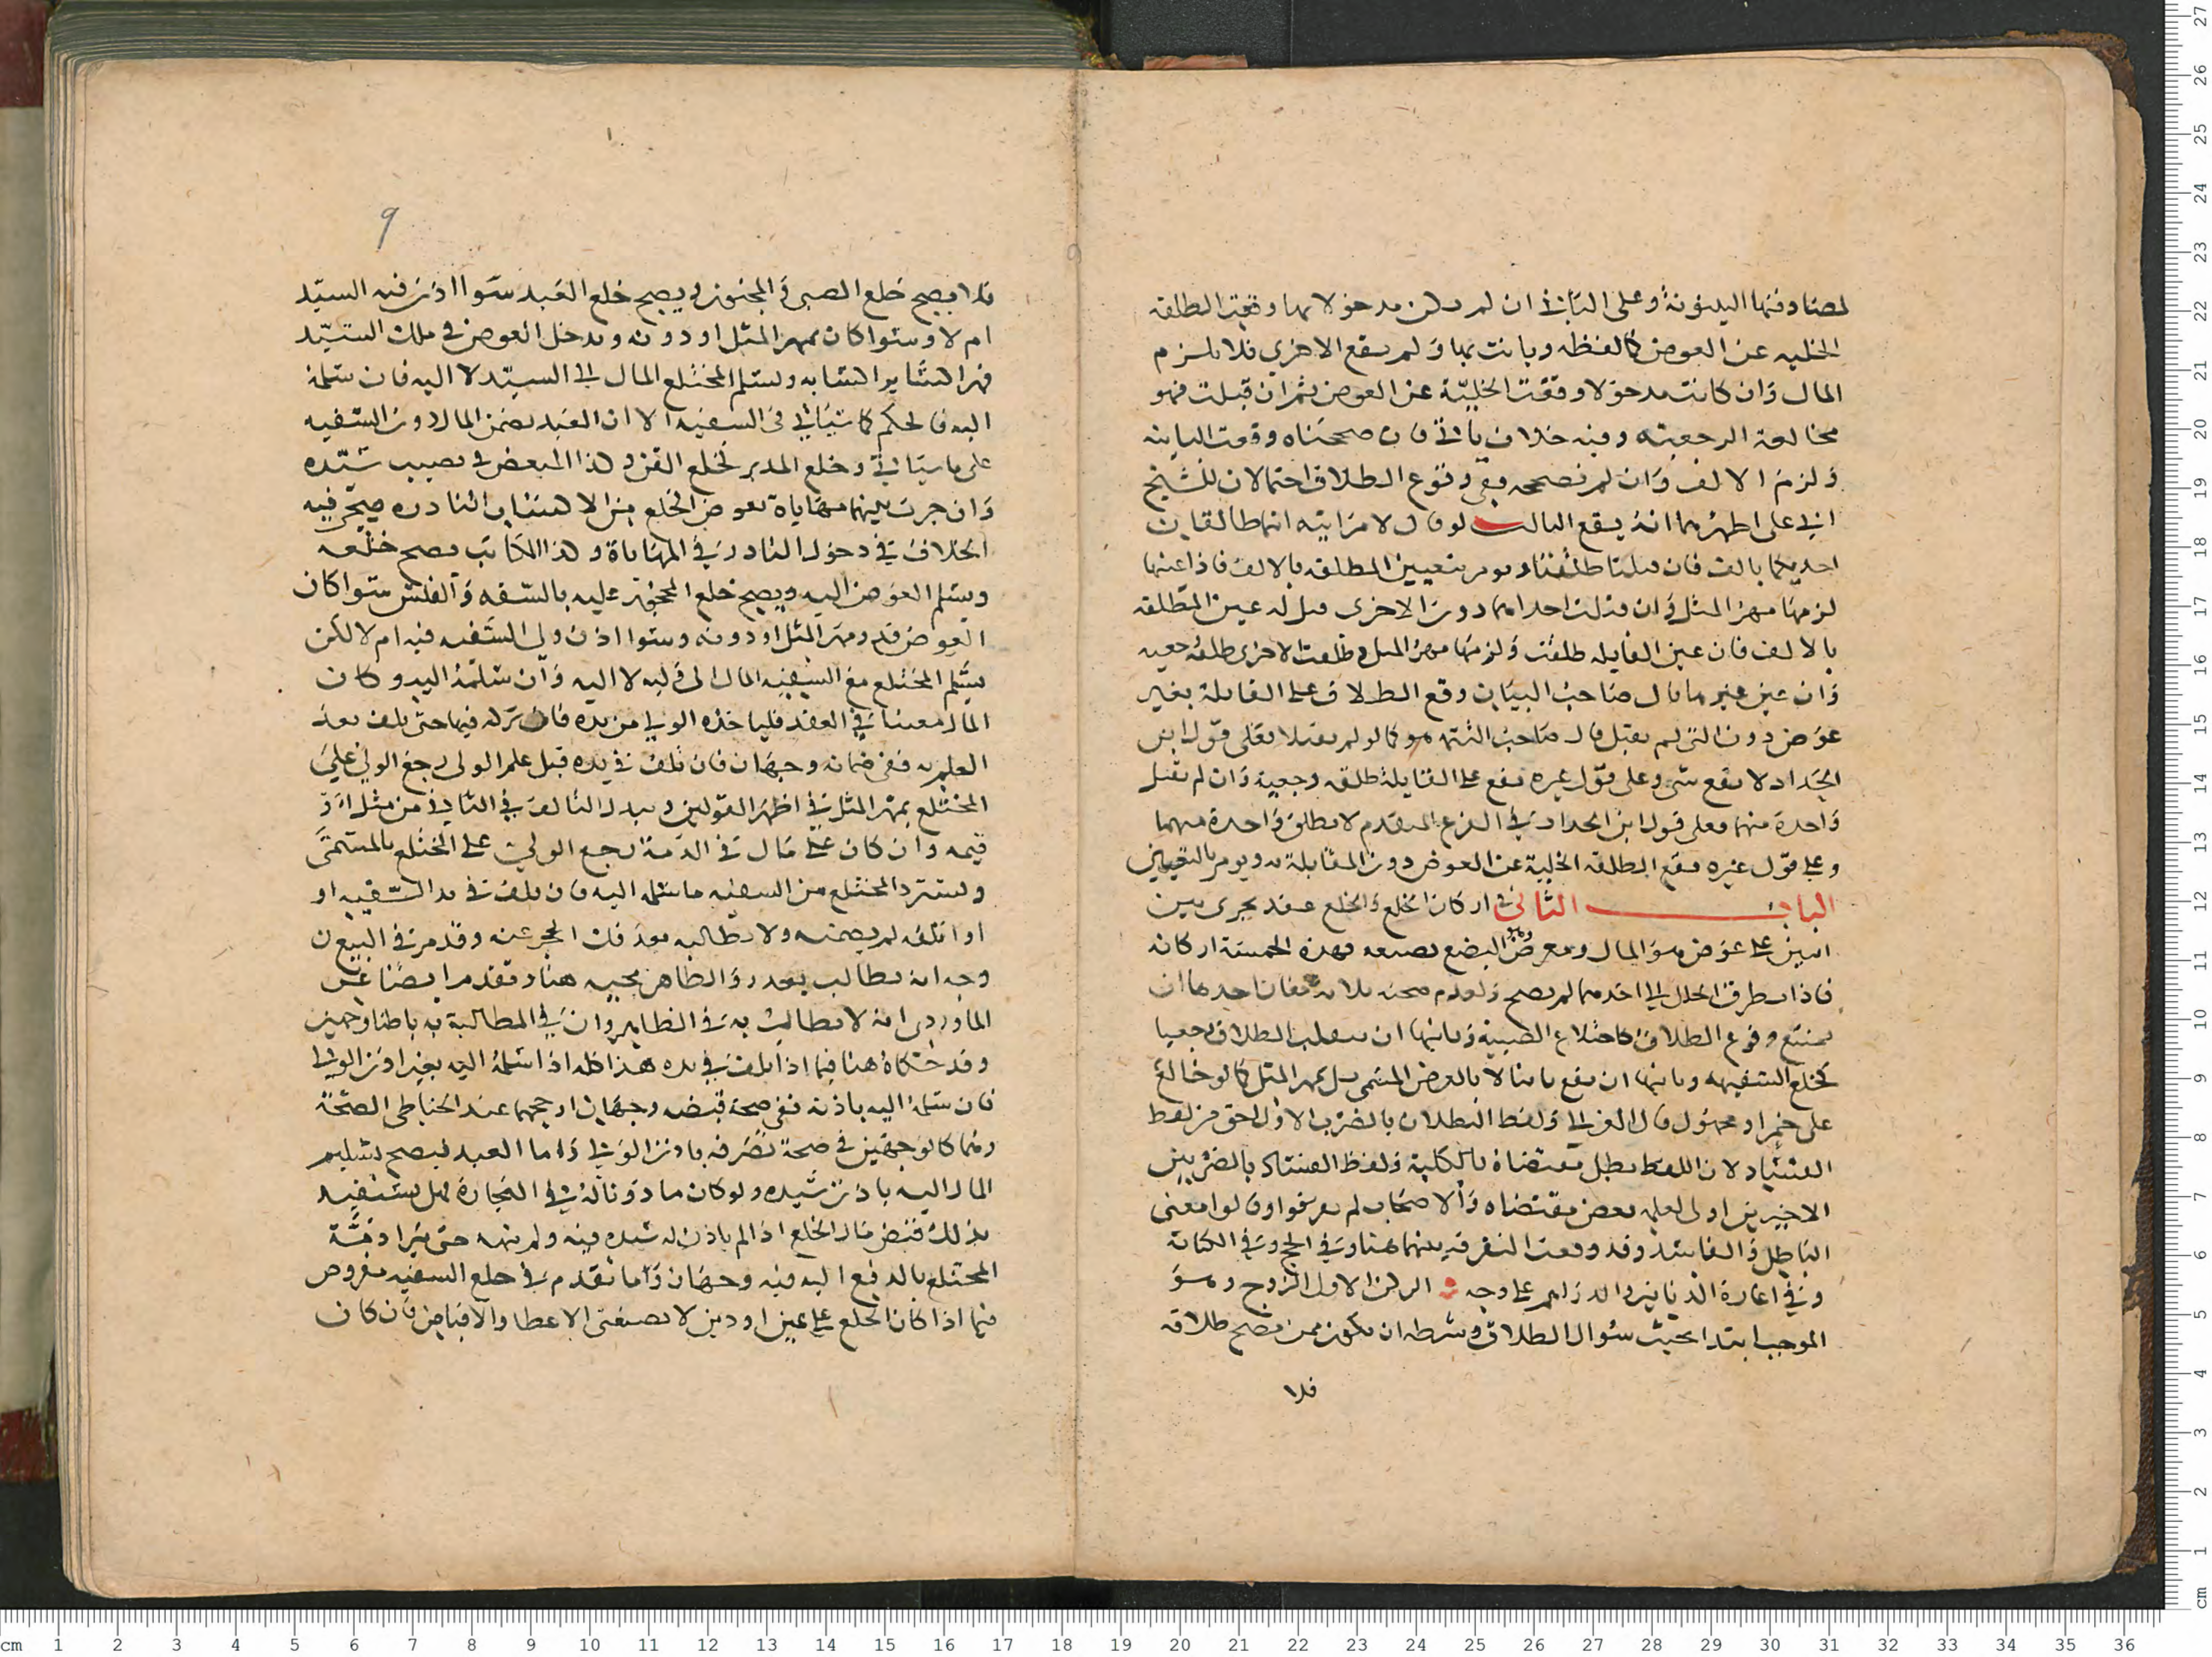 لمصادفتها البينونة وعلى الثاني ان لم يكن مدخولا بها وقعت الطلقة
الخلية عن العوض كالفظه وبانت بها ولم يقع الاخرى فلا يلزم
المال وان كانت مدخولا وقعت الخلية عن العوض ثم ان قبلت فهو
مخالعة الرجعية وفيه خلاف ياتي فان صححناه وقعت الباينة
ولزم الالف وان لم نصححه ففي وقوع الطلاق احتمالان للشيخ
ابي على اظهرهما انه يقع الثالث لو قال لامراتيه انتما طالقان
احديكما بالف فان قبلتا طلقتا ويومر بتعيين المطلقة بالالف فاذا عينها
لزمها مهر المثل وان قبلت احداهما دون الاخرى قيل له عين المطلقة
بالالف فان عين القابلة طلقت ولزمها مهر المثل وطلقت الاخرى طلقة رجعية
وان عين غيرها قال صاحب البيان وقع الطلاق على القابلة بغير
عوض دون التي لم تقبل قال صاحب التتمة هو كما لو لم يقبلا فعلى قول ابن
الحداد لا يقع شي وعلى قول غيره تقع على القابلة طلقة رجعية وان لم تقبل
واحدة منهما فعلى قول ابن الحداد في الفرع المتقدم لا تطلق واحدة منهما
وعلى قول غيره تقع الطلقة الخلية عن العوض دون المقابلة به ويومر بالتعيين
الباب الثاني في اركان الخلع والخلع عقد يجري بين
اثنين على عوض هو المال ومعوض هو البضع بصيغة فهذه الخمسة اركانه
فاذا تطرق الخلل الى احدهما لم يصح ولعدم صحته ثلاثة معان احدها ان
يمتنع وقوع الطلاق كاختلاع الصبية وثانيها ان ينقلب الطلاق رجعيا
كخلع السفيهه وثالثها ان يقع باينا لا بالعوض المسمى بل بمهر المثل كما لو خالع
على خمر او مجهول قال الغزالي ولفظ البطلان بالضرب الاول احق من لفظ
الفساد لان اللفظ بطل مقتضاه بالكلية ولفظ الفساد بالضربين
الاخيرين اولى لعلمه بعض مقتضاه والاصحاب لم يفرقوا وقالوا معنى
الباطل والفاسد وقد وقعت التفرقة بينهما هنا وفي الحج وفي الكتابة
وفي اعارة الدنانير والدراهم على وجه الركن الاول الزوج وهو
الموجب ابتدا بحيث سوال الطلاق وشرطه ان يكون ممن يصح طلاقه
فلا
9
فلا يصح خلع الصبي والمجنون ويصح خلع العبد سوا اذن فيه السيد
ام لا وسوا كان بمهر المثل او دونه ويدخل العوض في ملك السيد
قهرا كساير اكسابه ويسلم المختلع المال الى السيد لا اليه فان سلمه
اليه فالحكم كما سياتي في السفيه الا ان العبد يضمن المال دون السفيه
على ما سياتي وخلع المدبر كخلع القن وكذا المبعض في نصيب سيده
وان جرت بينهما مهاياة فعوض الخلع من الاكساب النادرة فيجي فيه
الخلاف في دخول النادر في المهاياة وكذا المكاتب يصح خلعه
ويسلم العوض اليه ويصح خلع المحجور عليه بالسفه والفلس سوا كان
العوض قدر مهر المثل او دونه وسوا اذن ولي السفيه فيه ام لا لكن
يسلم المختلع مع السفيه المال الى وليه لا اليه وان سلمه اليه وكان
المال معينا في العقد فلياخذه الولي من يده فان تركه فيها حتى تلف بعد
العلم به ففي ضمانه وجهان فان تلف في يده قبل علم الولي رجع الولي على
المختلع بمهر المثل في اظهر القولين وببدل التالف في الثاني من مثل او
قيمه وان كان على مال في الذمة رجع الولي على المختلع بالمسمى
ويسترد المختلع من السفيه ما سلمه اليه فان تلف في يد السفيه او
او اتلفه لم يضمنه ولا يطالب به بعد فك الحجر عنه وقد مر في البيع ان
وجه انه يطالب بعد رد والظاهر مجيه هنا وتقدم ايضا عن
الماوردي انه لا يطالب به في الظاهر وان في المطالبة به باطنا وجهين
وقد حكاه هنا فيما اذا تلف في يده هذا كله اذا سلمه اليه بغير اذن الولي
فان سلمه اليه باذنه ففي صحة قبضه وجهان ارجحهما عند الحناطي الصحة
وهما كالوجهين في صحة تصرفه باذن الولي واما العبد فيصح تسليم
المال اليه باذن سيده ولو كان ماذونا له في التجارة فهل يستفيد
بذلك قبض مال الخلع اذا لم ياذن له سيده فيه ولم ينهه حتى يبرا ذمة
المختلع بالدفع اليه فيه وجهان وما تقدم في خلع السفيه مفروض
فيما اذا كان الخلع على عين او دين لا بصيغتي الاعطا والاقباض فان كان